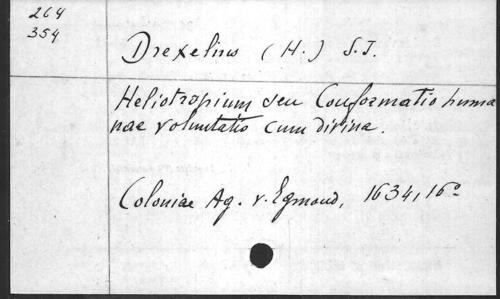 264
354
Drexelius (H.) S.J.
Heliotropium seu Conformatio huma
nae voluntatis cum divina.
Coloniae Ag. v. Egmond, 1634, 16º